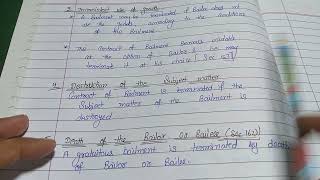 3. Inconsistent use of goods
* A Bailment may be terminated if Bailee does not
use the goods, according to the conditions
of the Bailment.
* The Contract of Bailment becomes voidable
at the option of Bailor & he may
terminate it at his choice (Sec 153)
4. Destruction of the Subject matter
Contract of Bailment is terminated if the
Subject matter of the Bailment is
destroyed
Death of the Bailor or Bailee (Sec 162)
A gratuitous bailment is terminated by death
of Bailor or Bailee.